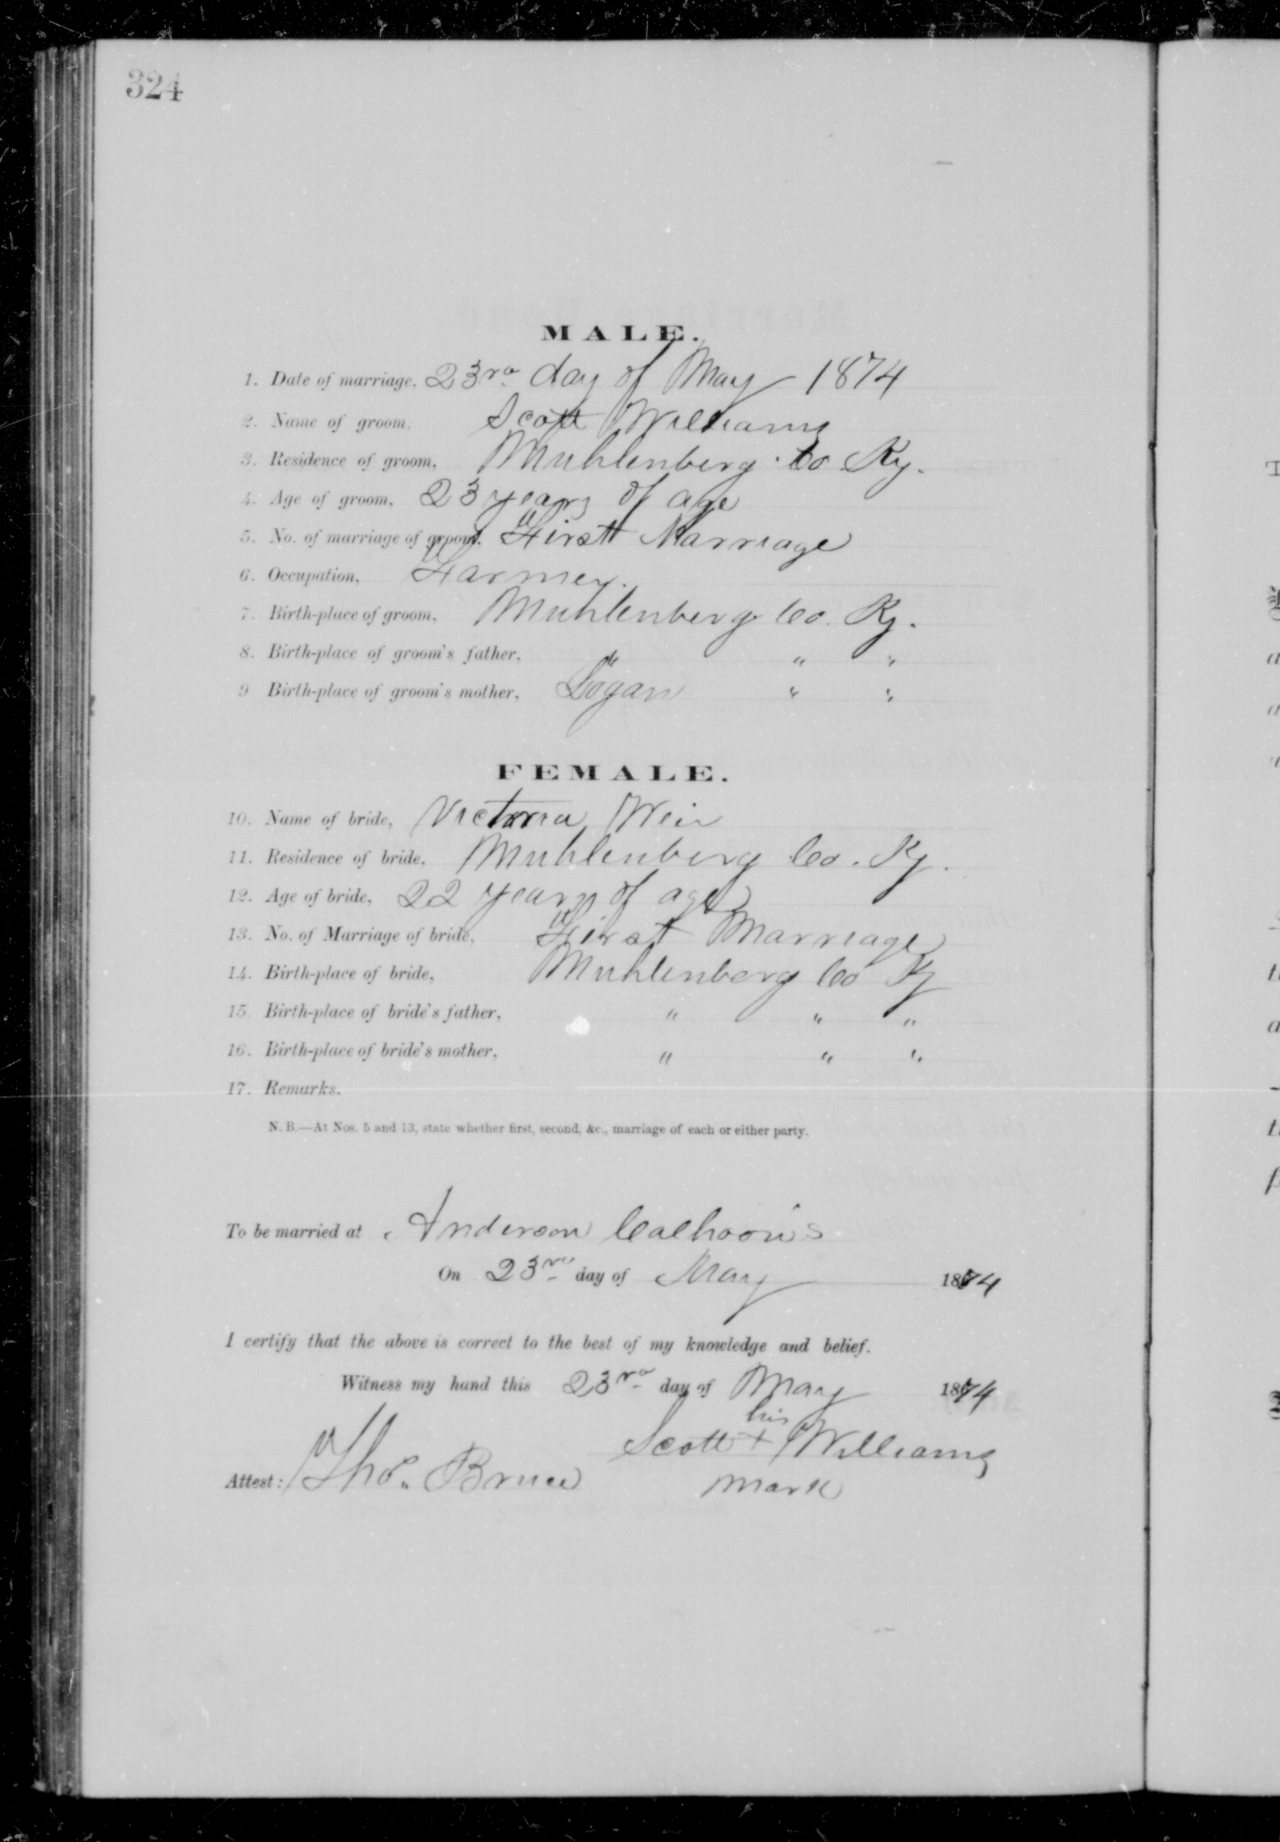 324
MALE.
1. Date of marriage, 23rd day of May 1874
2. Name of groom, Scott Williams
3. Residence of groom, Muhlenberg Co Ky.
4. Age of groom, 23 years of age
5. No. of marriage of groom, First Marriage
6. Occupation, Farmer.
7. Birth-place of groom, Muhlenberg Co. Ky.
8. Birth-place of groom's father, " " "
9 Birth-place of groom's mother, Logan " "
FEMALE.
10. Name of bride, Victoria Weir
11. Residence of bride, Muhlenberg Co. Ky.
12. Age of bride, 22 years of age
13. No. of Marriage of bride, First Marriage
14. Birth-place of bride, Muhlenberg Co Ky
15. Birth-place of bride's father, " " "
16. Birth-place of bride's mother, " " "
17. Remarks.
N. B.—At Nos. 5 and 13, state whether first, second, &c., marriage of each or either party.
To be married at Anderson Calhoon's
On 23rd day of May 1874
I certify that the above is correct to the best of my knowledge and belief.
Witness my hand this 23rd day of May 1874
his
Scott + Williams
Attest: Thos. Bruce mark